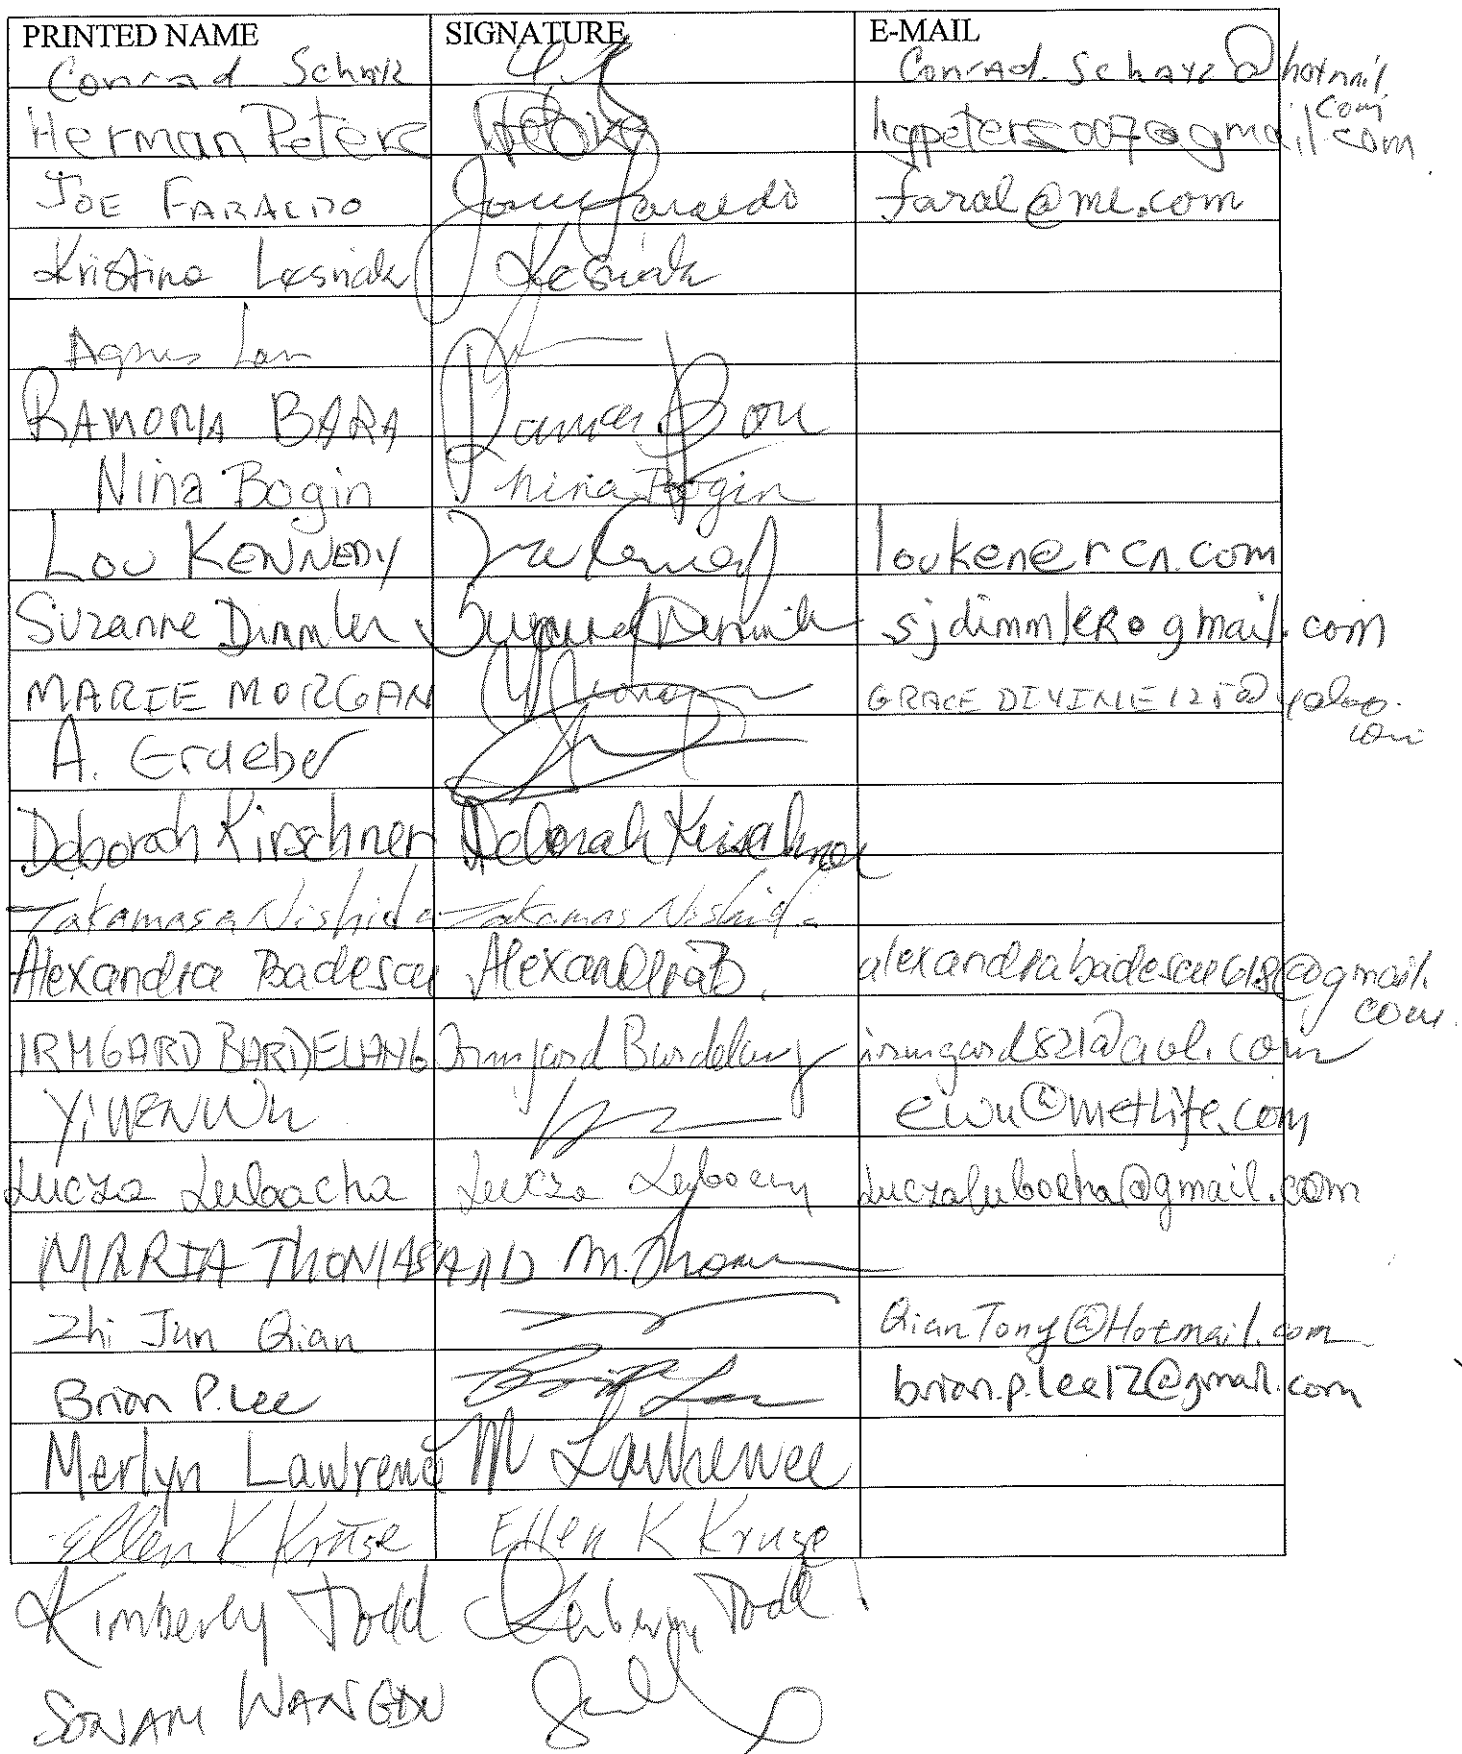 PRINTED NAME SIGNATURE E-MAIL
Conrad
Herman Peters hgpeters007@gmail.com
JOE FARALDO faral@me.com
Kristina Lesniak Lesniak
Agnes Lam
RAMONA BARA
Nina Bogin Nina Bogin
LOU KENNEDY Lou Kennedy louken@rcn.com
Suzanne Dimmler sjdimmler@gmail.com
MARIE MORGAN GRACEDIVINE125@yahoo.
com
A. Graeber
Deborah Kirschner Deborah Kirschner
Takamasa Nishida Takamasa Nishida
Alexandra Badescu AlexandraB. alexandrabadescu618@gmail.
com
IRMGARD BARDELANG Irmgard Bardelang irmgard821@aol.com
YIWEN WU ewu@metlife.com
MARIA THOMASAND M. Thomas
Zhi Jun Qian QianTony@Hotmail.com
Brian P. Lee brian.p.lee12@gmail.com
Merlyn Lawrence M Lawrence
Ellen K Kruse Ellen K Kruse
Kimberly Todd Kimberly Todd
SONAM WANGDU